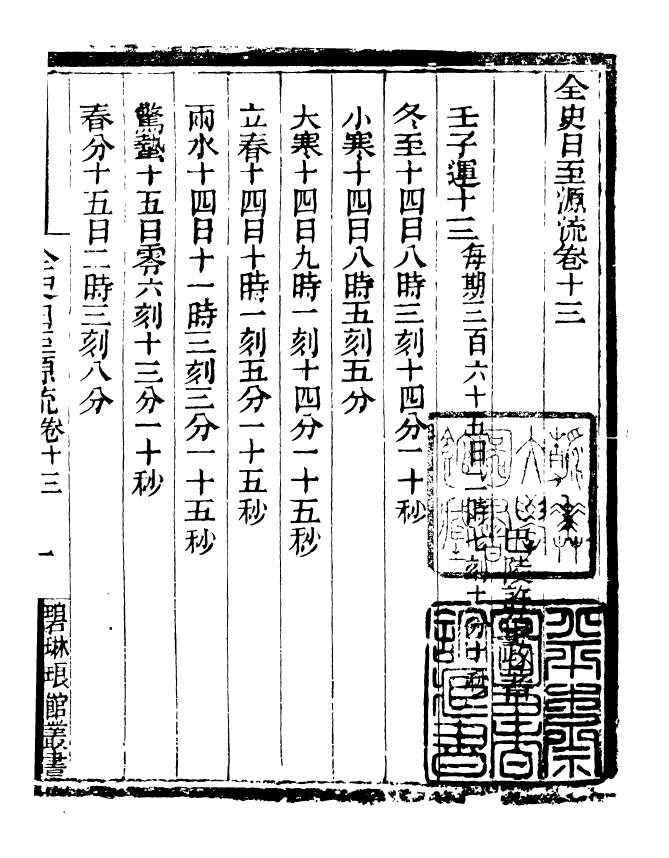 全史日至源流卷十三
巴陵許
壬子運十三 每期三百六十五日二時七刻十分十秒
冬至十四日八時三刻十四分一十秒
小寒十四日八時五刻五分
大寒十四日九時一刻十四分一十五秒
立春十四日十時一刻五分一十五秒
雨水十四日十一時三刻三分一十五秒
驚蟄十五日零六刻十三分一十秒
春分十五日二時三刻八分
全史日至源流卷十三 一 碧琳琅館叢書